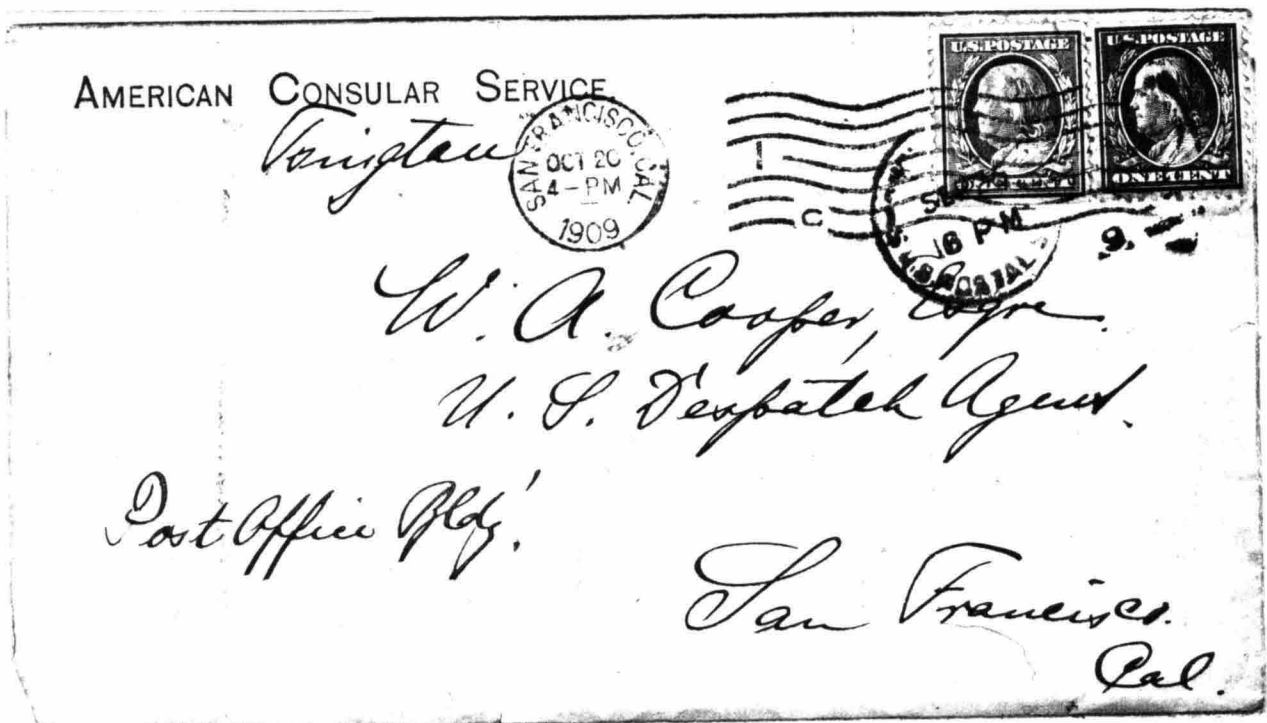 AMERICAN CONSULAR SERVICE.
Tsingtau
SAN FRANCISCO, CAL.
OCT 20
4-PM
1909
1
C
U.S. POSTAGE
U.S. POSTAGE
ONE CENT
ONE CENT
16 PM
U.S. POSTAL
9.
W. A. Cooper, Esqre.
U. S. Despatch Agent.
Post Office Bldg.
San Francisco.
Cal.